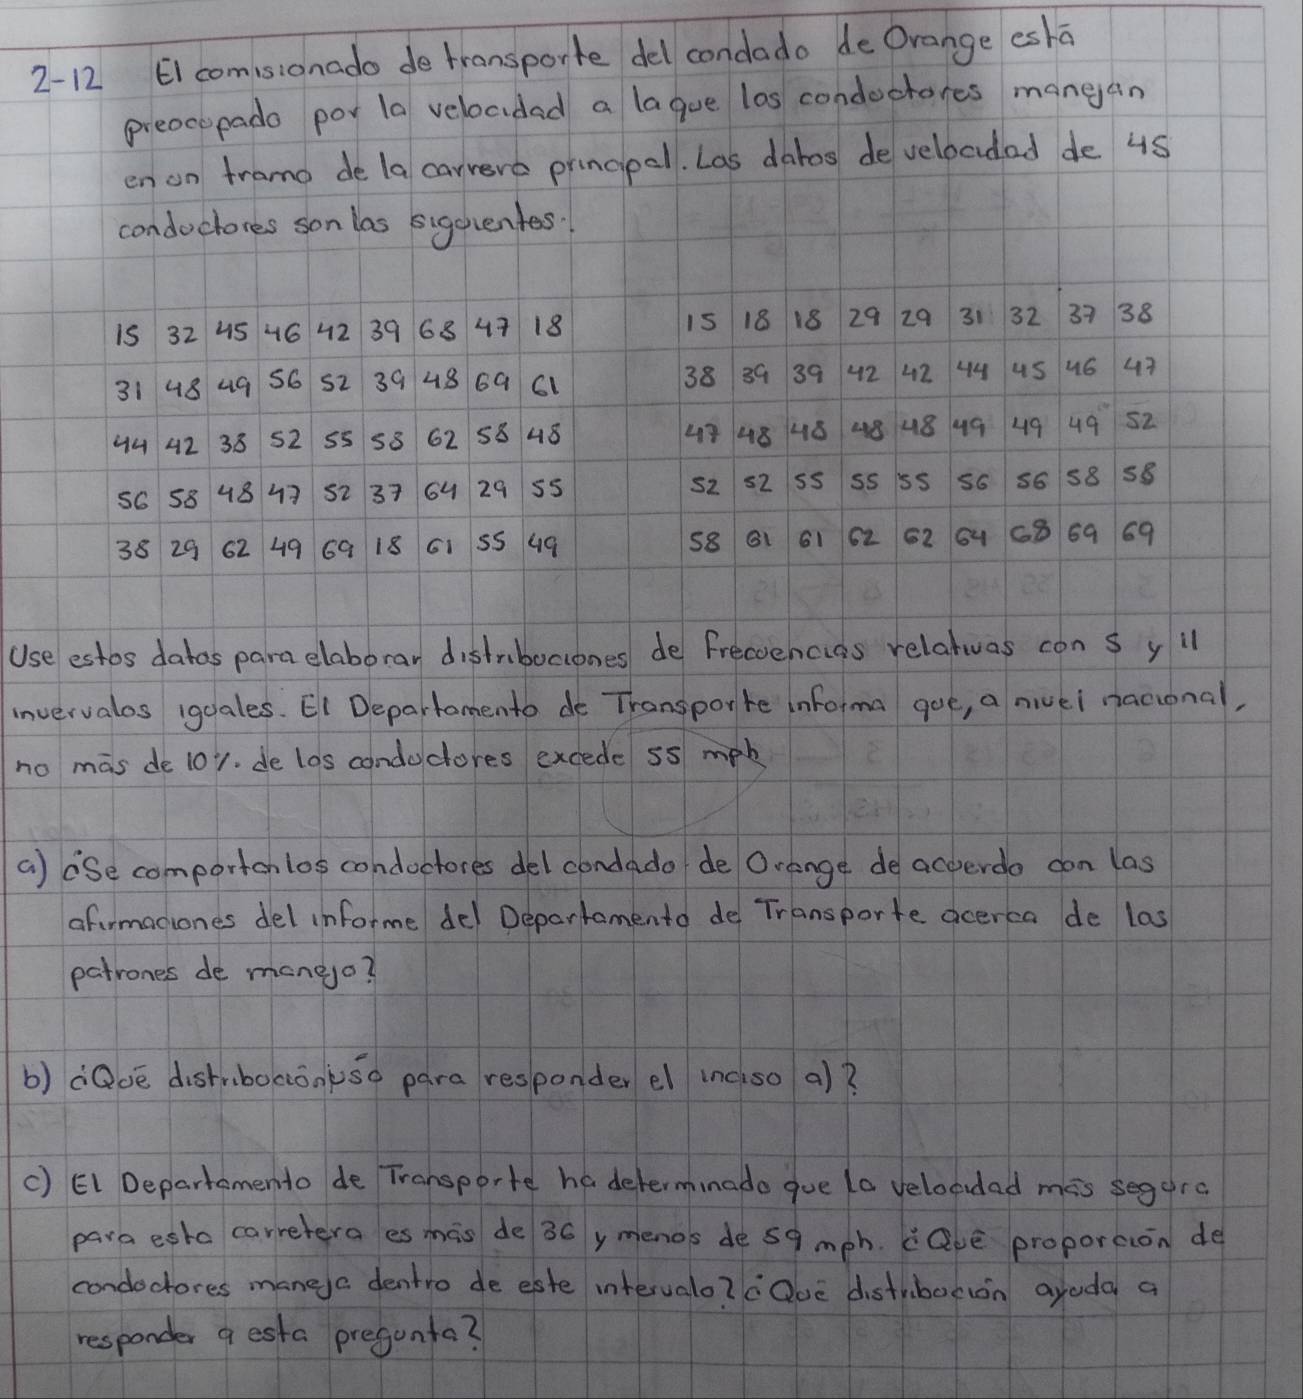 2-12 El comisionado de transporte del condado de Orange está
preocupado por la velocidad a la que los conductores manejan
en un tramo de la carrera principal. Los datos de velocidad de 45
conductores son los siguientes:
15 32 45 46 42 39 68 47 18
31 48 49 56 52 39 48 69 61
44 42 38 52 55 58 62 58 48
56 58 48 47 52 37 64 29 55
38 29 62 49 69 18 61 55 49
15 18 18 29 29 31 32 37 38
38 39 39 42 42 44 45 46 47
47 48 48 48 48 49 49 49 52
52 52 55 55 55 56 56 58 58
58 61 61 62 62 64 68 69 69
Use estos datos para elaborar distribuciones de frecuencias relativas con 5 y 11
invervalos iguales. El Departamento de Transporte informa que, a nivel nacional,
no más de 10%. de los conductores excede 55 mph
a) ¿Se comportan los conductores del condado de Orange de acuerdo con las
afirmaciones del informe del Departamento de Transporte acerca de los
patrones de manejo?
b) ¿Qué distribución usó para responder el inciso a)?
c) El Departamento de Transporte ha determinado que la velocidad más segura
para esta carretera es más de 36 y menos de 59 mph. ¿Qué proporción de
conductores maneja dentro de este intervalo? ¿Qué distribución ayuda a
responder a esta pregunta?